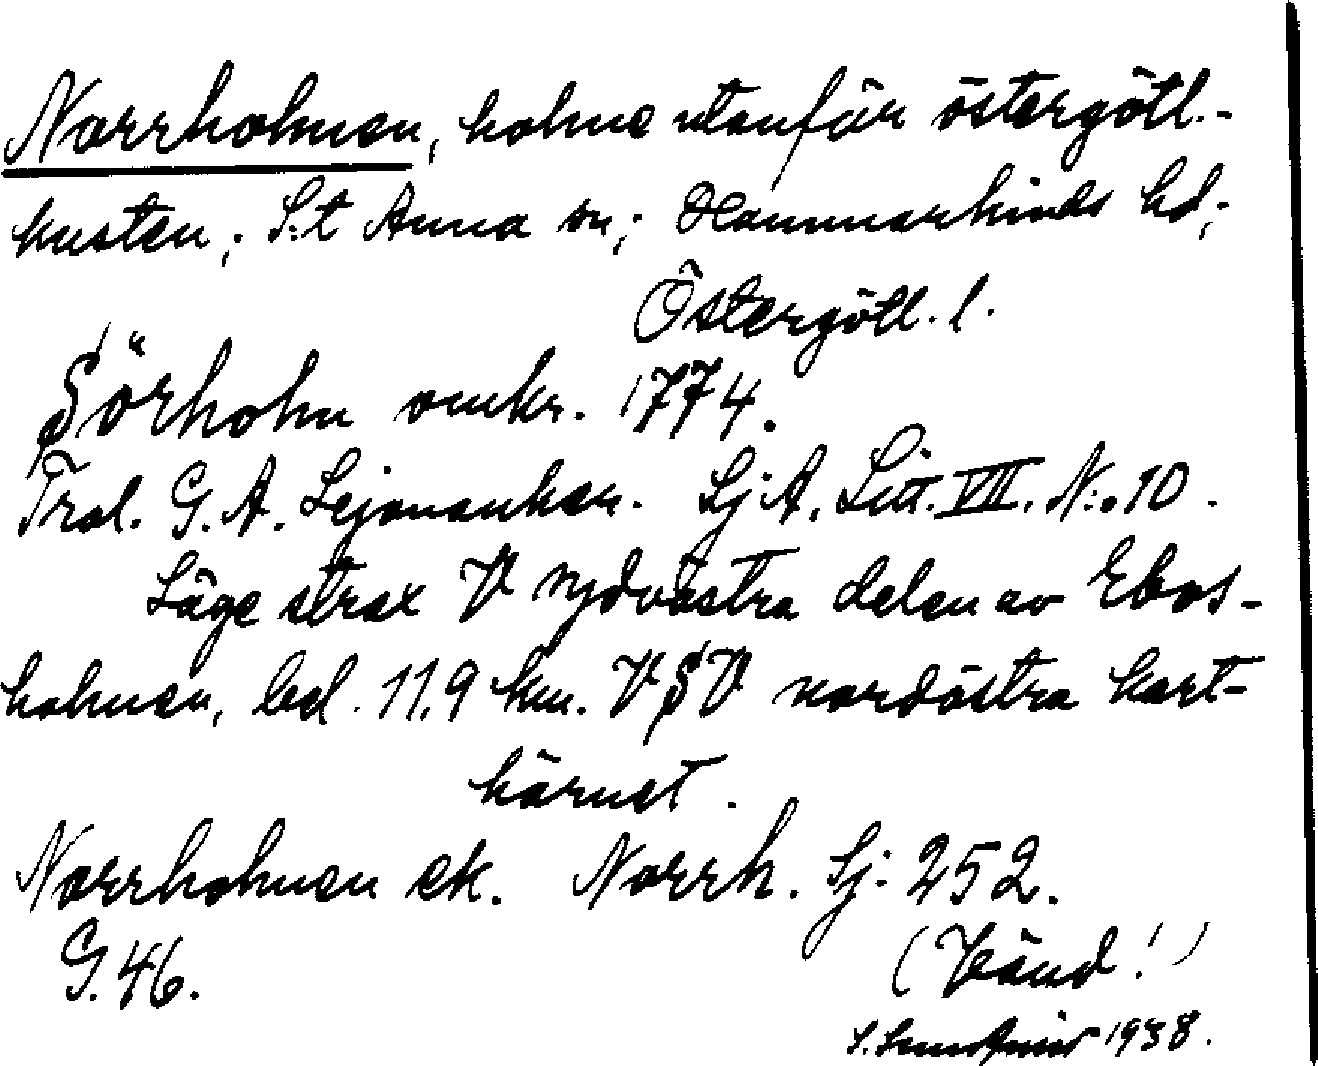 Norrholmen, holme utanför östergötl.-
kusten; S:t Anna sn; Hammarkinds hd;
Östergötl. l.
Sörholm omkr. 1774.
Trol. G. A. Lejonanker. Sj. A. Litt. VII. N:o 10.
Läge strax V sydvästra delen av Ebos-
holmen, bel. 11,9 km. VSV nordöstra kart-
hörnet.
Norrholmen ek. Norrh. Sj: 252.
G. 46.
(Vänd!)
1938.